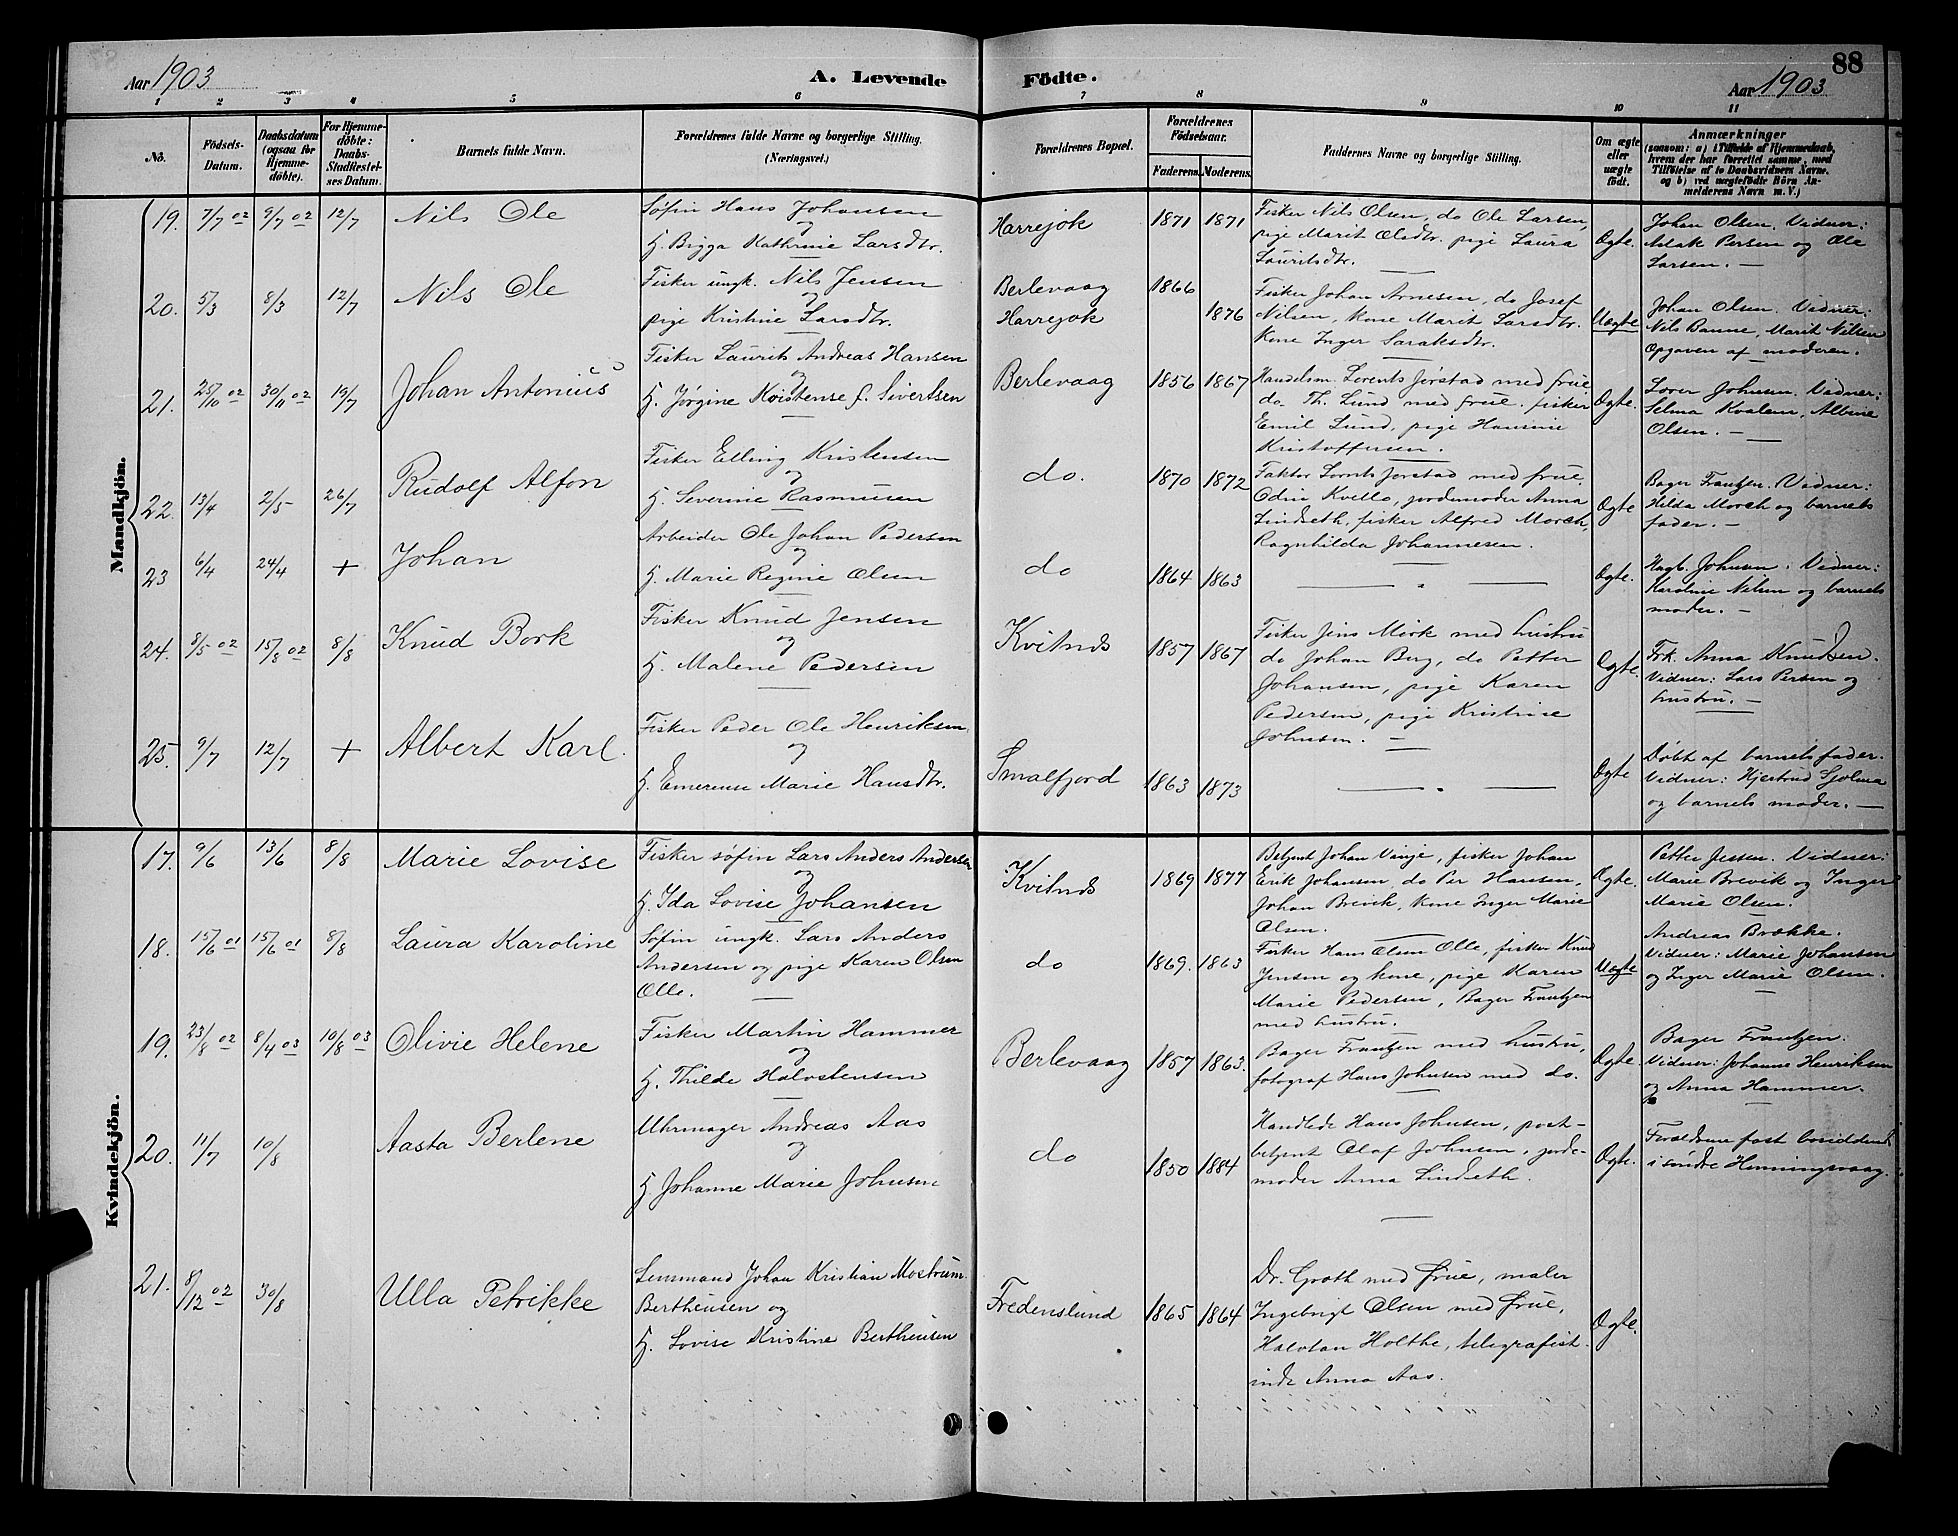 88
Aar 1903
A. Levende Födte.
Aar 1903
1 2 3 4 5 6 7 8 9 10 11
No.
Födsels-
Datum.
Daabsdatum
(ogsaa for
Hjemme-
döbte).
For Hjemme-
döbte:
Daabs-
Stadfæstel-
ses Datum.
Barnets fulde Navn.
Forældrenes fulde Navne og borgerlige Stilling.
(Næringsvei.)
Forældrenes Bopæl.
Forældrenes
Födselsaar.
Faderens. Moderens.
Faddernes Navne og borgerlige Stilling.
Om ægte
eller
uægte
født.
Anmærkninger
(saasom: a) i Tilfælde af Hjemmedaab,
hvem der har forrettet samme, med
Tilföielse af to Daabsvidners Navne,
og b) ved uægtefödte Börn An-
melderens Navn m. V.)
Mandkjön.
19. 7/7 02 9/7 02 12/7 Nils Ole
Søfin Hans Johansen
og
H. Bigga Kathrine Larsdtr.
Harrejok 1871 1871
Fisker Nils Olsen, do Ole Larsen,
pige Marit Olsdtr. pige Laura
Lauritsdtr.
Ægte.
Johan Olsen. Vidner:
Aslak Persen og Ole
Larsen.
20. 5/3 8/3 12/7 Nils Ole
Fisker ungk. Nils Jensen
og
pige Kristine Larsdtr.
Berlevaag 1866
Harrejok 1876
Fisker Johan Arnesen, do Josef
Nilsen, kone Marit Larsdtr.
kone Inger Saraksdtr.
Uægte
Johan Olsen. Vidner:
Nils Banne, Marit Nilsen
Opgaven af moderen.
21. 25/10 02 30/11 02 19/7 Johan Antonius
Fisker Laurits Andreas Hansen
og
H. Jørgine Kristense f. Sivertsen
Berlevaag 1856 1867
Handelsm. Lorents Jørstad med frue,
do. Th. Lund med frue. fisker
Emil Lund, pige Hansine
Kristoffersen.
Ægte.
Loren Johnsen. Vidner:
Selma Kvalem, Albine
Olsen.
22. 13/4 2/5 26/7 Rudolf Alfon
Fisker Elling Kristensen
og
H. Severine Rasmusen
do. 1870 1872
Faktor Lornts Jørstad med frue,
Odin Kvello, jordemoder Anna
Lindseth, fisker Alfred Morch,
Ragnhilda Johannesen.
Ægte
Bager Frantzen. Vidner:
Hilda Morch og barnets
fader.
23 6/4 24/4 + Johan
Arbeider Ole Johan Pedersen
og
H. Marie Regine Olsen
do 1864 1863
Ægte.
Hagb. Johnsen. Vidner:
Karoline Nilsen og barnets
moder.
24. 8/5 02 15/8 02 8/8 Knud Bork
Fisker Knud Jensen
og
H. Malene Pedersen
Kvitnes 1857 1867
Fisker Jens Mörk med hustru
do Johan Berg, do Petter
Johansen, pige Karen
Pedersen, pige Kristine
Johnsen.
Ægte.
Frk. Anna Knudsen.
Vidner: Lars Persen og
hustru.
25. 9/7 12/7 + Albert Karl.
Fisker Peder Ole Henriksen
og
H. Emerense Marie Hansdtr.
Smalfjord 1863 1873
Ægte
Døbt af barnets fader.
Vidner: Hjertrud Sjølma
og barnets moder.
Kvindekjön.
17. 9/6 13/6 8/8 Marie Lovise
Fisker søfin Lars Anders Andersen
og
H. Ida Lovise Johansen
Kvitnes 1869 1877
Betjent Johan Vinje, fisker Johan
Erik Johansen, do Per Hansen,
Johan Brevik, kone Inger Marie
Olsen.
Ægte.
Petter Jessen. Vidner:
Marie Brevik og Inger
Marie Olsen.
18. 15/6 01 15/6 01 8/8 Laura Karoline
Søfin ungk. Lars Anders
Andersen og pige Karen Olsen
Olle.
do 1869. 1863
Fisker Hans Olsen Olle, fisker Knud
Jensen og kone, pige Karen
Marie Pedersen, Bager Frantzen
med hustru.
Uægte
Andreas Brække.
Vidner: Marie Johansen
og Inger Marie Olsen.
19. 23/8 02 8/4 03 10/8 03 Olivie Helene
Fisker Martin Hammer
og
H. Thilde Halvstensen
Berlevaag 1857 1863.
Bager Frantzen med hustru,
fotograf Hans Johnsen med do.
Ægte.
Bager Frantzen.
Vidner: Johanne Henriksen
og Anna Hammer.
20. 11/7 10/8 Aasta Berlene
Uhrmager Andreas Aas
og
H. Johanne Marie Johnsen
do 1850 1884
Handlede Hans Johnsen, post-
betjent Olaf Johnsen, jorde-
moder Anna Lindseth.
Ægte.
Forældrene fast bosiddende
i søndre Henningsvaag.
21. 8/12 02 30/8 Ulla Petrikke
Lensmand Johan Kristian Mostrum
Bertheusen og
H. Lovise Kristine Bertheusen
Fredenslund 1865 1864
Dr. Groth med frue, maler
Ingebrigt Olsen med frue,
Halvtan Holthe, telegrafist-
inde Anna Aas.
Ægte.